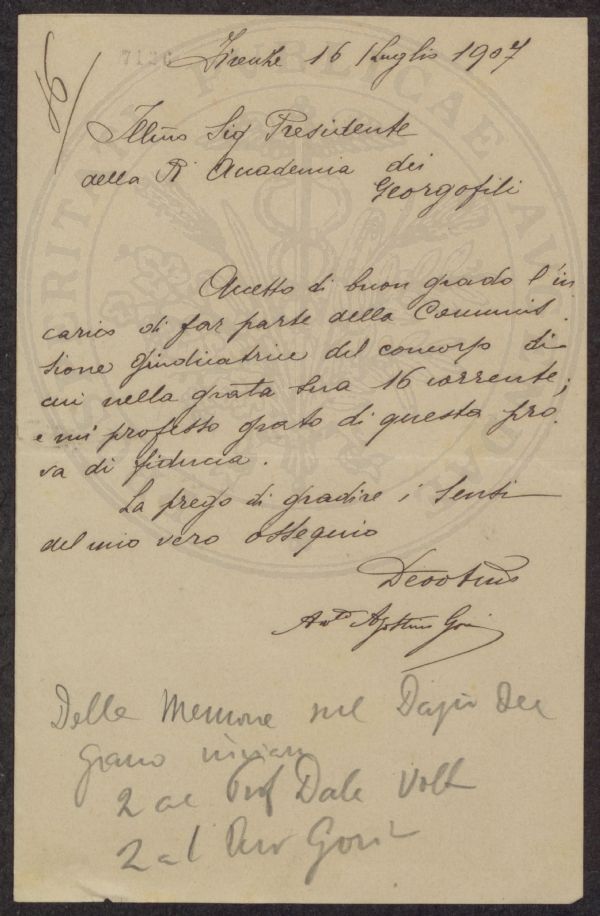 7136
Firenze 16 Luglio 1907
Illmo Sig Presidente
della R Accademia dei
Georgofili
Accetto di buon grado l'in
carico di far parte della Commis
sione giudicatrice del concorso di
cui nella grata sua 16 corrente;
e mi professo grato di questa pro
va di fiducia.
La prego di gradire i sensi
del mio vero ossequio
Devotmo
Agostino Gori
Delle Memorie sul Dazio del
grano
2 al Prof Dalla Volta
2 al Gori